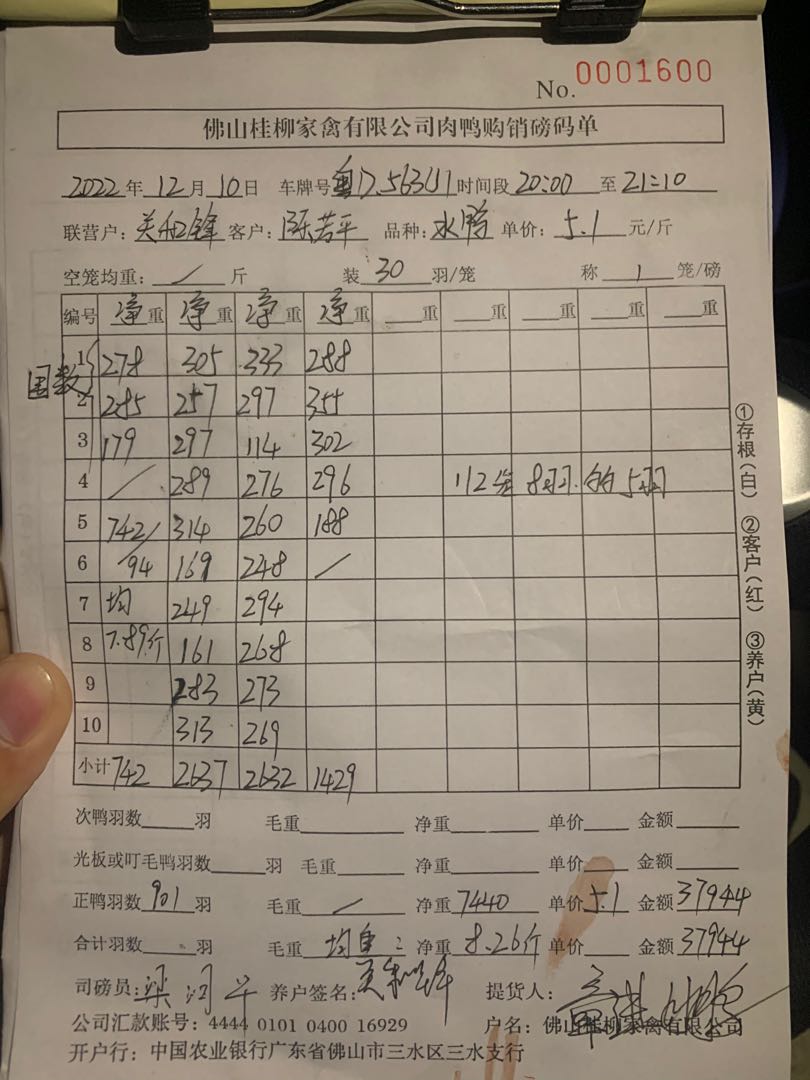 No. 0001600
佛山桂柳家禽有限公司肉鸭购销磅码单
2022年12月10日 车牌号粤 时间段20:00至21:10
联营户: 客户:陈若平 品种:水鸭 单价:5.1元/斤
空笼均重:/斤 装30羽/笼 称1笼/磅
编号 净重 净重 净重 净重 重 重 重 重 重
国数
1 278 305 333 288
2 285 257 297 355
3 179 297 114 302
4 / 289 276 296 8羽 5羽
5 742/ 314 260 188
6 /94 169 248 /
7 均 249 294
8 7.89斤 161 268
9 283 273
10 313 269
小计 742 2637 2632 1429
①存根(白) ②客户(红) ③养户(黄)
次鸭羽数 羽 毛重 净重 单价 金额
光板或叮毛鸭羽数 羽 毛重 净重 单价 金额
正鸭羽数901羽 毛重/ 净重7440 单价5.1 金额37944
合计羽数 羽 毛重 均重: 净重8.26斤 单价 金额37944
司磅员: 养户签名: 提货人:
公司汇款账号: 4444 0101 0400 16929 户名: 佛山桂柳家禽有限公司
开户行: 中国农业银行广东省佛山市三水区三水支行